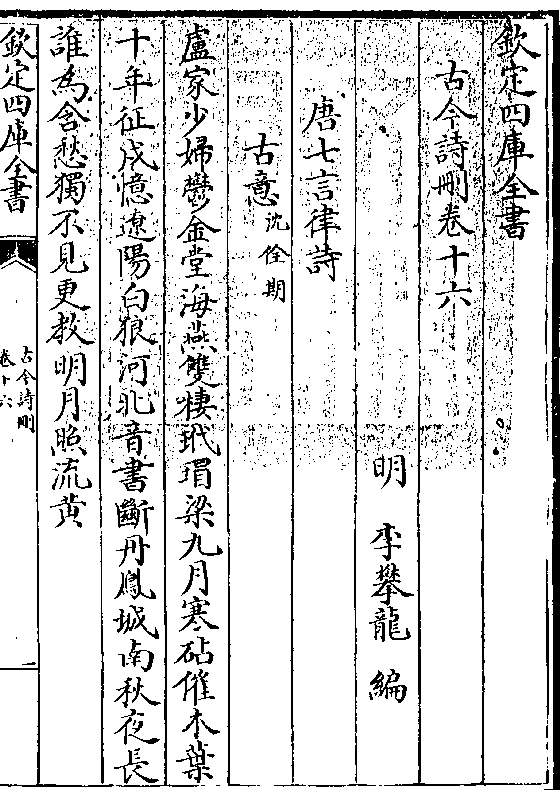 欽定四庫全書
古今詩刪卷十六
明 李攀龍 編
唐七言律詩
古意 沈佺期
盧家少婦鬱金堂海燕雙棲玳瑁梁九月寒砧催木葉
十年征戍憶遼陽白狼河北音書斷丹鳳城南秋夜長
誰為含愁獨不見更教明月照流黄
欽定四庫全書
古今詩刪
卷十六
一